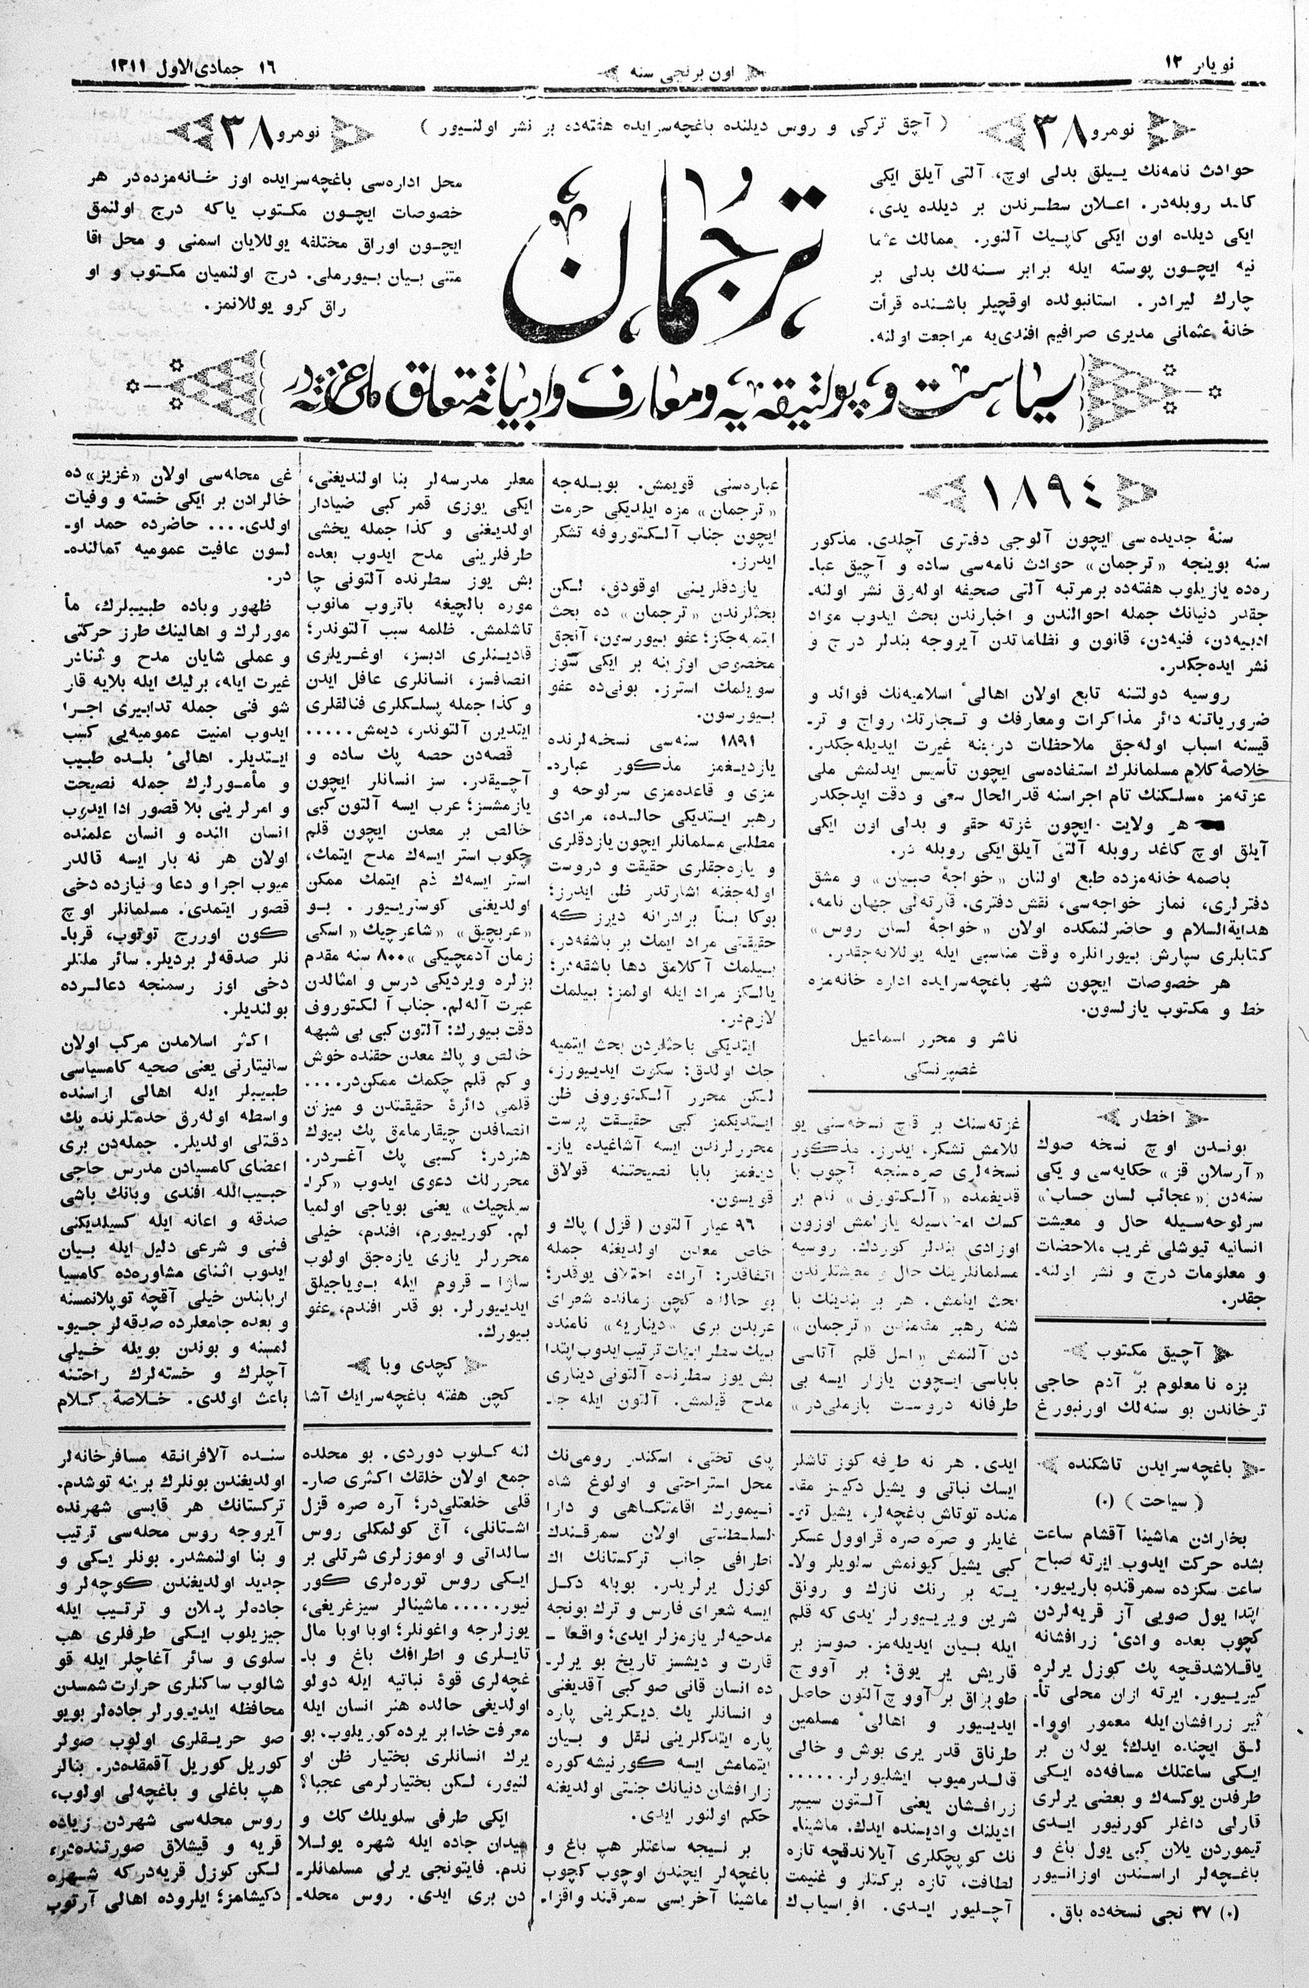 نویابر ۱۳
اون برنجی سنه
۱۶ جمادی‌الاول ۱۳۱۱
نومرو ۳۸
( آچق ترکی و روس دیلنده باغچه‌سرایده هفته‌ده بر نشر اولنیور )
نومرو ۳۸
حوادث نامه‌نك ییلق بدلی اوچ، آلتی آیلق ایکی
کاغد روبله‌در. اعلان سطرندن بر دیلده یدی،
ایکی دیلده اون ایکی کاپیك آلنور. ممالك عثما
نیه ایچون پوسته ایله برابر سنه‌لك بدلی بر
چارك لیرادر. استانبولده اوقچیلر باشنده قرأت
خانهٔ عثمانی مدیری صرافیم افندی‌یه مراجعت اولنه.
ترجمان
محل اداره‌سی باغچه‌سرایده اوز خانه‌مزده‌در هر
خصوصات ایچون مکتوب یاکه درج اولنمق
ایچون اوراق مختلفه یوللایان اسمنی و محل اقا
متنی بیان بیورملی. درج اولنمیان مکتوب و او
راق کرو یوللانمز.
سیاست و پولتیقه‌یه و معارف و ادبیاته متعلق ملی غزته‌در
۱۸۹٤
سنهٔ جدیده‌سی ایچون آلوجی دفتری آچلدی. مذکور
سنه بوینجه «ترجمان» حوادث نامه‌سی ساده و آچیق عبا-
ره‌ده یازیلوب هفته‌ده برمرتبه آلتی صحیفه اوله‌رق نشر اولنه-
جقدر دنیانك جمله احوالندن و اخبارندن بحث ایدوب مواد
ادبیه‌دن، فنیه‌دن، قانون و نظاماتدن آیروجه بندلر درج و
نشر ایده‌جکدر.
روسیه دولتنه تابع اولان اهالیٔ اسلامیه‌نك فوائد و
ضروریاتنه دائر مذاکرات ومعارفك و تجارتك رواج و تر-
قیسنه اسباب اوله‌جق ملاحظات درجنه غیرت ایدیله‌جکدر.
خلاصهٔ کلام مسلمانلرك استفاده‌سی ایچون تأسیس ایدلمش ملی
غزته‌مز مسلكنك تام اجراسنه قدرالحال سعی و دقت ایدجکدر
هر ولایت ایچون غزته حقی و بدلی اون ایکی
آیلق اوچ کاغد روبله آلتی آیلق‌ایکی روبله در.
باصمه خانه‌مزده طبع اولنان «خواجهٔ صبیان» و مشق
دفترلری، نماز خواجه‌سی، نقش دفتری، قارته‌لی جهان نامه،
هدایةالسلام و حاضرلنمکده اولان «خواجهٔ لسان روس»
کتابلری سپارش بیورانلره وقت مناسبی ایله یوللانه‌جقدر.
هر خصوصات ایچون شهر باغچه‌سرایده اداره خانه‌مزه
خط و مکتوب یازلسون.
ناشر و محرر اسماعیل
غصپرنسکی
اخطار
بوندن اوچ نسخه صوك
«آرسلان قز» حکایه‌سی و یکی
سنه‌دن «عجائب لسان حساب»
سرلوحه‌سیله حال و معیشت
انسانیه تیوشلی غریب ملاحضات
و معلومات درج و نشر اولنه-
جقدر.
آچیق مکتوب
بزه نامعلوم بر آدم حاجی
ترخاندن بو سنه‌لك اورنبورغ
غزته‌سنك بر قاچ نسخه‌سنی یو
للامش تشکر، ایدرز. مذکور
نسخه‌لری صره‌سنجه آچوب با
قدیغمده «آلکتورف» نام بر
کسك امضاسیله یازلمش اوزون
اوزادی بندلر کوردك. روسیه
مسلمانلرینك حال و معشتلرندن
بحث ایلمش. هر بر بندینك با
شنه رهبر مقامندن «ترجمان»
دن آلنمش «اهل قلم آتاسی
باباسی ایچون یازار ایسه بی
طرفانه دروست یازملی‌در»
عباره‌سنی قویمش. بویله‌جه
«ترجمان» مزه ایلدیکی حرمت
ایچون جناب آلکتوروفه تشکر
ایدرز.
یازدقلرینی اوقودق، لکن
بحثلرندن «ترجمان» ده بحث
ایتمه‌جکز؛ عفو بیورسون، آنجق
مخصوص اوزینه بر ایکی سوز
سویلمك استرز. بونی‌ده عفو
بیورسون.
۱۸۹۱ سنه‌سی نسخه‌لرنده
یازدیغمز مذکور عباره-
مزی و قاعده‌مزی سرلوحه و
رهبر ایتدیکی حالده، مرادی
مطلبی مسلمانلر ایچون یازدقلری
و یازه‌جقلری حقیقت و دروست
اوله‌جغنه اشارتدر ظن ایدرز؛
بوکا بنأ برادرانه دیرزکه
حقیقتی مراد ایتمك بر باشقه‌در،
بیلمك آکلامق دها باشقه‌در؛
یالکز مراد ایله اولمز؛ بیلمك
لازم‌در.
ایتدیکی باحثلردن بحث ایتمیه
جك اولدق؛ سکوت ایدییورز،
لکن محرر آلکتوروف ظن
ایتدیکمز کبی حقیقت پرست
محررلردن ایسه آشاغیده یاز-
دیغمز بابا نصیحتنه قولاق
قویسون.
۹۶ عیار آلتون (قزل) پاك و
خاص معدن اولدیغنه جمله
اتفاقدر؛ آراده اختلاف یوقدر؛
بو حالده کچن زمانده شعرای
عربدن بری «دیناریه» نامنده
بیك سطر ابیات ترتیب ایدوب ابتدا
بش یوز سطرنده آلتونی دیناری
مدح قیلمش. آلتون ایله جا-
معلر مدرسه‌لر بنا اولندیغنی،
ایکی یوزی قمر کبی ضیادار
اولدیغنی و کذا جمله یخشی
طرفلرینی مدح ایدوب بعده
بش یوز سطرنده آلتونی چا
موره بالچیغه باتروب مانوب
تاشلمش. ظلمه سبب آلتوندر؛
قادینلری ادبسز، اوغریلری
انصافسز، انسانلری غافل ایدن
و کذا جمله پسلکلری فنالقلری
ایتدیرن آلتوندر، دیمش.....
قصه‌دن حصه پك ساده و
آچیقدر. سز انسانلر ایچون
یازمشسز؛ عرب ایسه آلتون کبی
خالص بر معدن ایچون قلم
چکوب استر ایسه‌ك مدح ایتمك،
استر ایسه‌ك ذم ایتمك ممکن
اولدیغنی کوستریور. بو
«عربچیق» «شاعرچیك» «اسکی
زمان آدمچیکی» ۸۰۰ سنه مقدم
بزلره ویردیکی درس و امثالدن
عبرت آله‌لم. جناب آلکتوروف
دقت بیورك: آلتون کبی بی شبهه
خالص و پاك معدن حقنده خوش
و کم قلم چکمك ممکن‌در....
قلمی دائرهٔ حقیقتدن و میزن
انصافدن چیقارمامق پك بیوك
هنردر؛ کسبی پك آغردر.
محررلك دعوی ایدوب «کرا-
سلچیك» یعنی بویاجی اولمیا
لم. کوریپورم، افندم، خیلی
محررلر یازی یازه‌جق اولوب
ساژا - قروم ایله بویاجیلق
ایدییورلر. بو قدر افندم، عفو
بیورك.
کچدی وبا
کچن هفته باغچه‌سرایك آشا
غی محله‌سی اولان «عزیز» ده
خالردن بر ایکی خسته و وفیات
اولدی.... حاضرده حمد او-
لسون عافیت عمومیه کمالنده-
در.
ظهور وباده طبیبلرك، مأ
مورلرك و اهالینك طرز حرکتی
و عملی شایان مدح و ثنادر
غیرت ایله، برلیك ایله بلایه قار
شو فنی جمله تدابیری اجرا
ایدوب امنیت عمومیه‌یی کسب
ایتدیلر. اهالیٔ بلده طبیب
و مأمورلرك جمله نصیحت
و امرلرینی بلا قصور ادا ایدوب
انسان النده و انسان علمنده
اولان هر نه بار ایسه قالدر
میوب اجرا و دعا و نیازده دخی
قصور ایتمدی. مسلمانلر اوچ
کون اوررج توتوب، قربا-
نلر صدقه‌لر بردیلر. سائر ملتلر
دخی اوز رسمنجه دعالرده
بولندیلر.
اکثر اسلامدن مرکب اولان
سانیتارنی یعنی صحیه کامسیاسی
طبیبلر ایله اهالی اراسنده
واسطه اوله‌رق خدمتلرنده پك
دقتلی اولدیلر. جمله‌دن بری
اعضای کامسیادن مدرس حاجی
حبیب‌الله افندی وبانك باشی
صدقه و اعانه ایله کسیلدیکنی
فنی و شرعی دلیل ایله بیان
ایدوب اثنای مشاوره‌ده کامسیا
اربابندن خیلی آقچه توپلانمسنه
و بعده جامعلرده صدقه‌لر جیو-
لمسنه و بوندن بویله خیلی
آچلرك و خسته‌لرك راحتنه
باعث اولدی. خلاصهٔ کلام
باغچه‌سرایدن تاشکنده
( سیاحت ) (۰)
بخارادن ماشینا آقشام ساعت
بشده حرکت ایدوب ایرته صباح
ساعت سکزده سمرقنده باریپور.
ابتدا یول صویی آز قریه‌لردن
کچوب بعده وادیٔ زرافشانه
یاقلاشدقچه پك کوزل یرلره
کیریپور. ایرته ازان محلی تأ-
ثیر زرافشان‌ایله معمور اووا-
لق ایچنده ایدك؛ یولدن بر
ایکی ساعتلك مسافه‌ده ایکی
طرفدن یوکسه‌ك و بعضی یرلری
قارلی داغلر کورنیور ایدی
تیموردن یلان کبی یول باغ و
باغچه‌لر اراسندن اوزانیور
(۰) ۳۷ نجی نسخه‌ده باق.
ایدی. هر نه طرفه کوز تاشلر
ایسك نباتی و یشیل دکیز مقا-
منده توتاش باغچه‌لر، یشیل تر-
غایلر و صره صره قراوول عسکر
کبی یشیل کیونمش سلویلر ولا-
یته بر رنك نازك و رونق
شرین ویریپورلر ایدی که قلم
ایله بیان ایدیله‌مز. صوسز بر
قاریش یر یوق؛ بر آووچ
طوپراق بر آووچ آلتون حاصل
ایدییور و اهالیٔ مسلمین
طرناق قدر یری بوش و خالی
قالدرمیوب ایشلیورلر......
زرافشان یعنی آلتون سیپر
ادیلنك وادیسنده ایدك. ماشینا-
نك کوپچکلری آیلاندقچه تازه
لطافت، تازه برکتلر و غنیمت
آچلیور ایدی. افراسیابك
پای تختی، اسکندر رومی‌نك
محل استراحتی و اولوغ شاه
تیمورك اقامتکاهی و دارا
لسلطنتی اولان سمرقندك
اطرافی جانب ترکستانك اك
کوزل یرلریدر. بویله دکل
ایسه شعرای فارس و ترك بونجه
مدحیه‌لر یازمزلر ایدی؛ واقعا -
قارت و دیشسز تاریخ بو یرلر-
ده انسان قانی صو کبی آقدیغنی
و انسانلر یك دیکرینی پاره
پاره ایتدکلرینی نقل و بیان
ایتمامش ایسه کورنیشه کوره
زارافشان دنیانك جنتی اولدیغنه
حکم اولنور ایدی.
بر نیجه ساعتلر هپ باغ و
باغچه‌لر ایچندن اوچوب کچوب
ماشینا آخریسی سمرقند واقزا-
لنه کلوب دوردی. بو محلده
جمع اولان خلقك اکثری صار-
قلی خلعتلی‌در؛ آره صره قزل
اشتانلی، آق کولمکلی روس
سالداتی و اوموزلری شرتلی بر
ایکی روس توره‌لری کور
نیور..... ماشینالر سیزغریغی،
یوزلرجه واغونلر؛ اوبا اوبا مال
تایلری و اطرافك باغ و با-
غچه‌لری قوهٔ نباتیه ایله دولو
اولدیغی حالده هنر انسان ایله
معرفت خدا بر یرده کوریلوب، بو
یرك انسانلری بختیار ظن او
لنیور، لکن بختیارلرمی عجبا؟
ایکی طرفی سلویلك کك و
میدان جاده ایله شهره یوللا
ندم. فایتونجی یرلی مسلمانلر-
دن بری ایدی. روس محله-
سنده آلافرانقه مسافرخانه‌لر
اولدیغندن بونلرك برینه توشدم.
ترکستانك هر قایسی شهرنده
آیروجه روس محله‌سی ترتیب
و بنا اولنمشدر. بونلر یکی و
جدید اولدیغندن کوچه‌لر و
جاده‌لر پلان و ترتیب ایله
جیزیلوب ایکی طرفلری هپ
سلوی و سائر آغاچلر ایله قو
شالوب ساکنلری حرارت شمسدن
محافظه ایدییورلر جاده‌لر بویو
صو حریقلری اولوب صولر
کوریل کوریل آقمقده‌در. بنالر
هپ باغلی و باغچه‌لی اولوب،
روس محله‌سی شهردن زیاده
قریه و قیشلاق صورتنده‌در،
لکن کوزل قریه‌درکه شهره
دکیشامز؛ ایلروده اهالی آرتوب